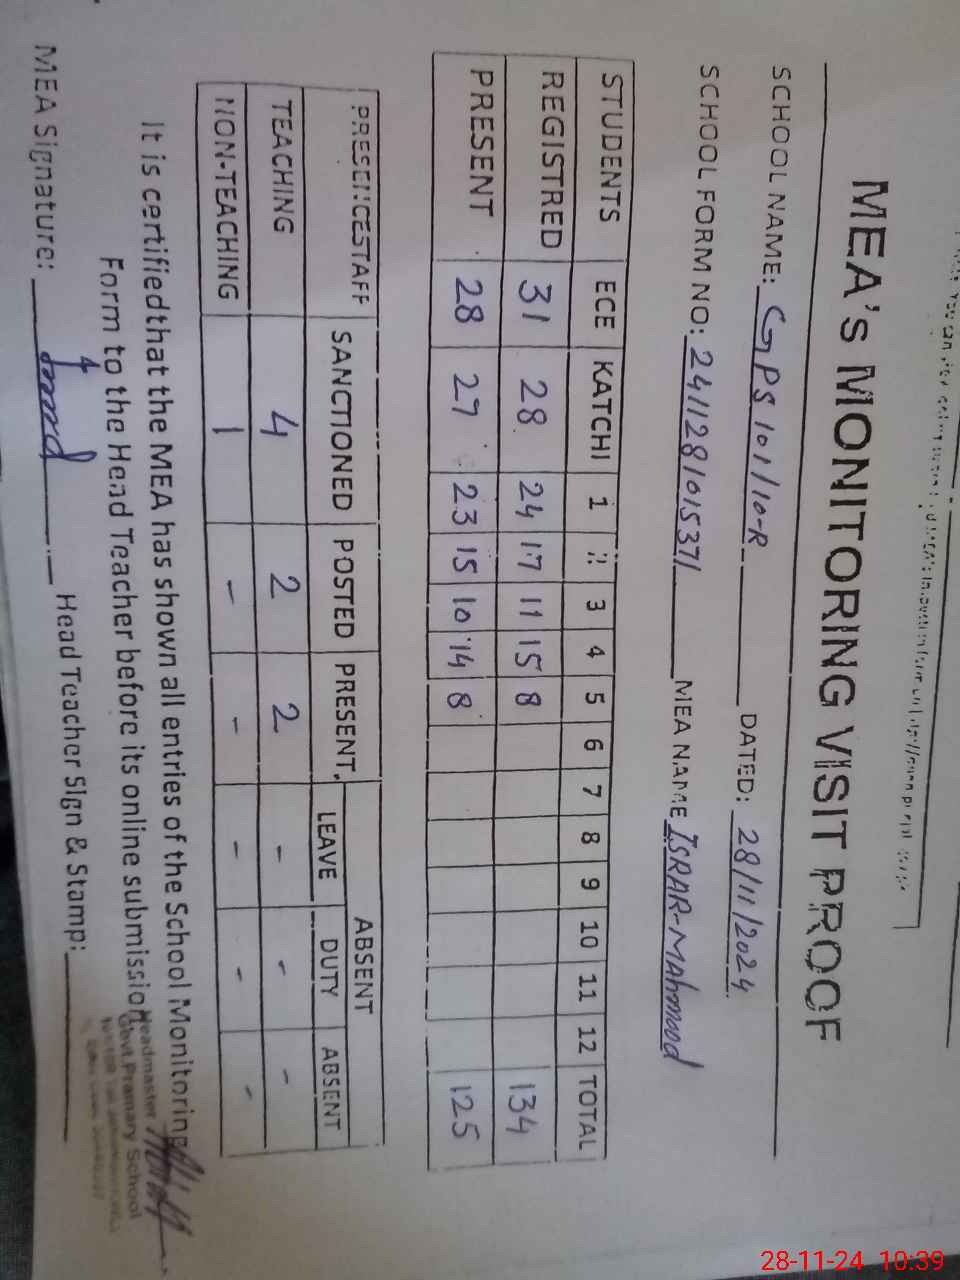 MEA's MONITORING VISIT PROOF
SCHOOL NAME: GPS 101/10-R DATED: 28/11/2024
SCHOOL FORM NO: 2411281015371 MEA NAME ISRAR-MAhmood
STUDENTS ECE KATCHI 1 2 3 4 5 6 7 8 9 10 11 12 TOTAL
REGISTRED 31 28 24 17 11 15 8 134
PRESENT 28 27 23 15 10 14 8 125
PRESENCESTAFF SANCTIONED POSTED PRESENT ABSENT
LEAVE DUTY ABSENT
TEACHING 4 2 2 - - -
NON-TEACHING 1 - - - - -
It is certified that the MEA has shown all entries of the School Monitoring
Form to the Head Teacher before its online submission
MEA Signature: Head Teacher Sign & Stamp:
Headmaster
Govt. Pramary School
28-11-24 10:39